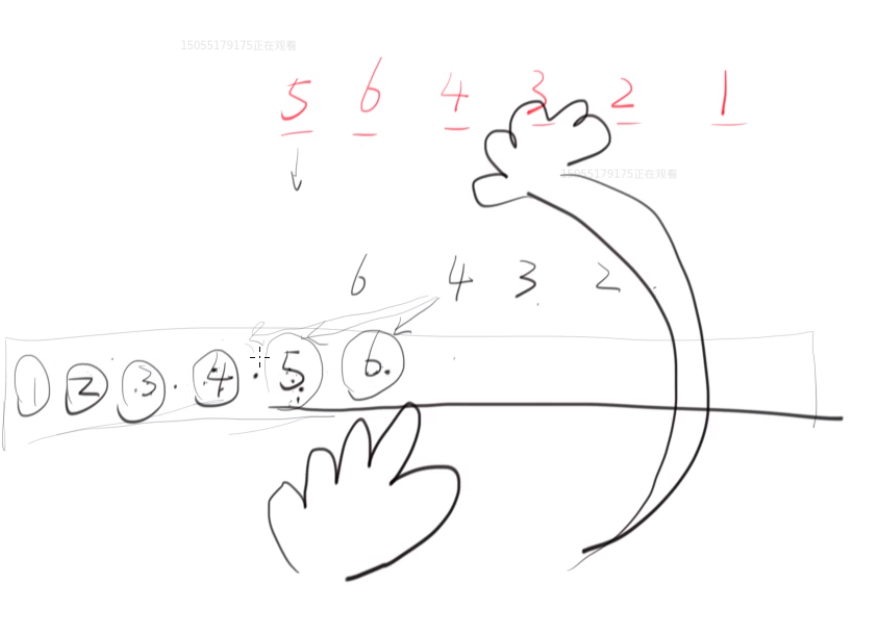 15055179175正在观看
5 6 4 3 2 1
15055179175正在观看
6 4 3 2
1 2 3 4 5 6